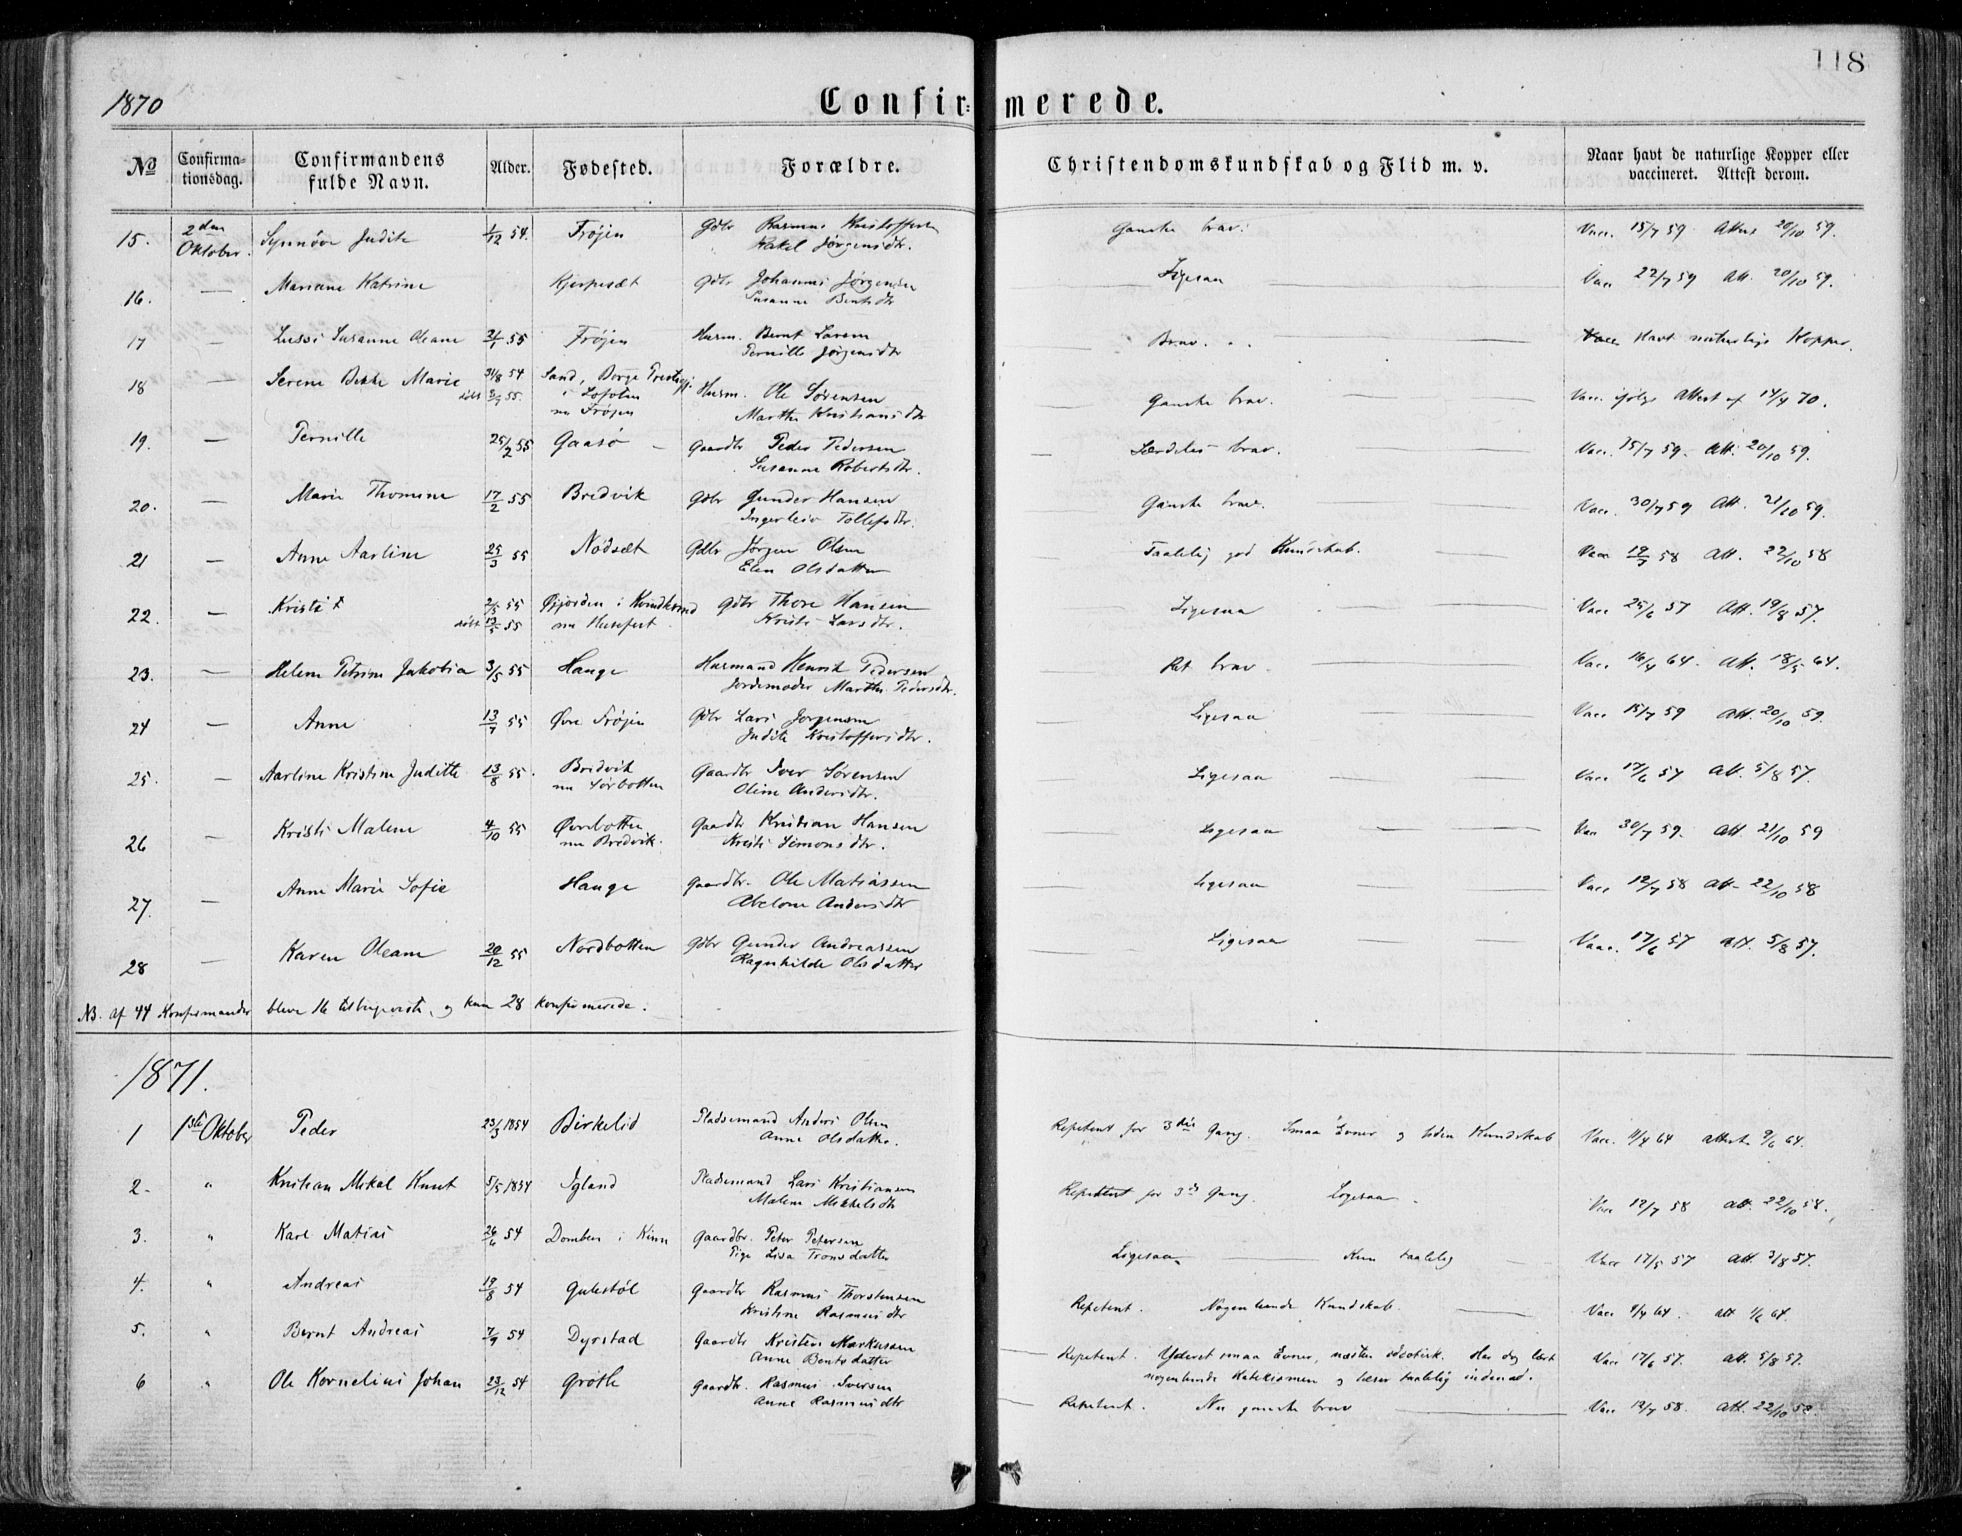 118
1870
Confir= merede.
No
Confirma-
tionsdag.
Confirmandens
fulde Navn.
Alder.
Fødested.
Forældre.
Christendomskundskab og Flid m. v.
Naar havt de naturlige Kopper eller
vaccineret. Attest derom.
15. 2den Oktober. Synnøve Judite 1/12 54. Frøjen Gdbr Rasmus Kristoffers Rakel Jørgensdtr. Ganske brav. Vacc. 15/7 59 Attest 20/10 59.
16. — Mariane Katrine Kjerpesæt Gdbr Johannes Jørgensen Susanne Bentsdtr Ligesaa Vacc 22/7 59 Att. 20/10 59.
17 — Lussi Susanne Oleane 2/1 55 Frøjen Husm. Bernt Larsen Pernille Jørgensdtr Brav. Vacc Havt naturlige Kopper.
18 — Serene Marie 31/8 54 døbt 55. Sand, Borge Prestegj. i Lofoten nu Frøjen Husm. Ole Sørensen Marthe Kristiansdtr Ganske brav. Vacc. ifølge Attest af 14/4 70.
19. — Pernille 25/2 55 Gaasø — Gaardbr Peder Pedersen Susanne Robertsdtr. Særdeles brav. Vacc. 15/7 59. Att. 20/10 59.
20. — Marie Thomine 17/2 55 Bredvik Gdbr Gunder Hansen Ingerleiv Tollefsdtr. Ganske brav. Vacc. 30/7 59 Att. 21/10 59.
21 — Anne Aarline 25/3 55 Nodsæt Gdbr Jørgen Olsen Elen Olsdatter Taalelig god Kundskab. Vacc 12/7 58 Att. 22/10 58
22. — Kristi 2/5 55 døbt 13/5 55 i nu Husefest. Gdbr Thore Hansen Kristi Larsdtr. Ligesaa Vacc 25/6 57 Att. 19/8 57.
23. — Helene Petrine Jakobia 3/5 55 Hauge Husmand Henrik Pedersen Jordemoder Marthe Pedersdtr. Ret brav. Vacc. 16/4 64. Att. 18/5 64.
24 — Anne 13/7 55 Øvre Frøjen Gdbr Lars Jørgensen Judite Kristoffersdtr. Ligesaa Vacc 15/7 59 Att. 20/10 59.
25. — Aarline Kristine Juditte 13/8 55. Bredvik nu Sørbotten Gaardbr Iver Sørensen Oline Andersdtr. Ligesaa Vacc 17/6 57 Att. 5/8 57.
26 — Kristi Malene 4/10 55 Øvrebotten nu Bredvik. Gaardbr Kristian Hansen Kristi Simonsdtr. Ligesaa Vacc 30/7 59. Att. 21/10 59
27. — Anne Marie Sofie Hauge Gaardbr. Ole Matiassen Abelone Andersdtr Ligesaa Vacc 12/7 58 Att- 22/10 58
28 — Karen Oleane 20/12 55 Nordbotten Gdbr Gunder Andreassen Ragnhilde Olsdatter Ligesaa Vacc. 17/6 57 att. 5/8 57.
NB. af 44 Konfirmander bleve 16 tilbageviste, og kun 28 konfirmerede.
1871.
1 1ste Oktober Peder 23/3 1854 Birkelid Pladsemand Anders Olsen Anne Olsdatter. Repetent for 3die Gang. Smaa Evner og liden Kundskab Vacc. 11/4 64 attest 9/6 64.
2. " Kristian Mikal Knut 5/5 1854 Igland Pladsemand Lars Kristiansen Malene Mikkelsdtr Repetent for 3de Gang. Ligesaa. Vacc 12/7 58 att. 22/10 58.
3. " Karl Matias 26/6 54 Domben i Kinn Gaardbr. Peter Petersen Pige Lisa Tronsdatter Ligesaa. Kun taalelig Vacc 17/5 57 Att. 3/8 57.
4. " Andreas 19/8 54 Gulestøl Gaardbr Rasmus Thorstensen Kristine Rasmusdtr Repetent. Nogenlunde Kundskab. Vacc. 9/4 64. att 1/6 64.
5. " Bernt Andreas 7/9 54 Dyrstad Gaardbr Kristen Markussen Anne Bentsdatter Repetent. Yderst smaa Evner, næsten idiotisk. Har dog lært nogenlunde Katekismen og læser taalelig indenad. Vacc 17/6 57. att. 5/8 57.
6 " Ole Kornelius Johan 23/12 54 Grotle Gaardbr. Rasmus Iversen Anne Rasmusdtr Repetent. Nu ganske brav Vacc 12/7 58. Att. 22/10 58.